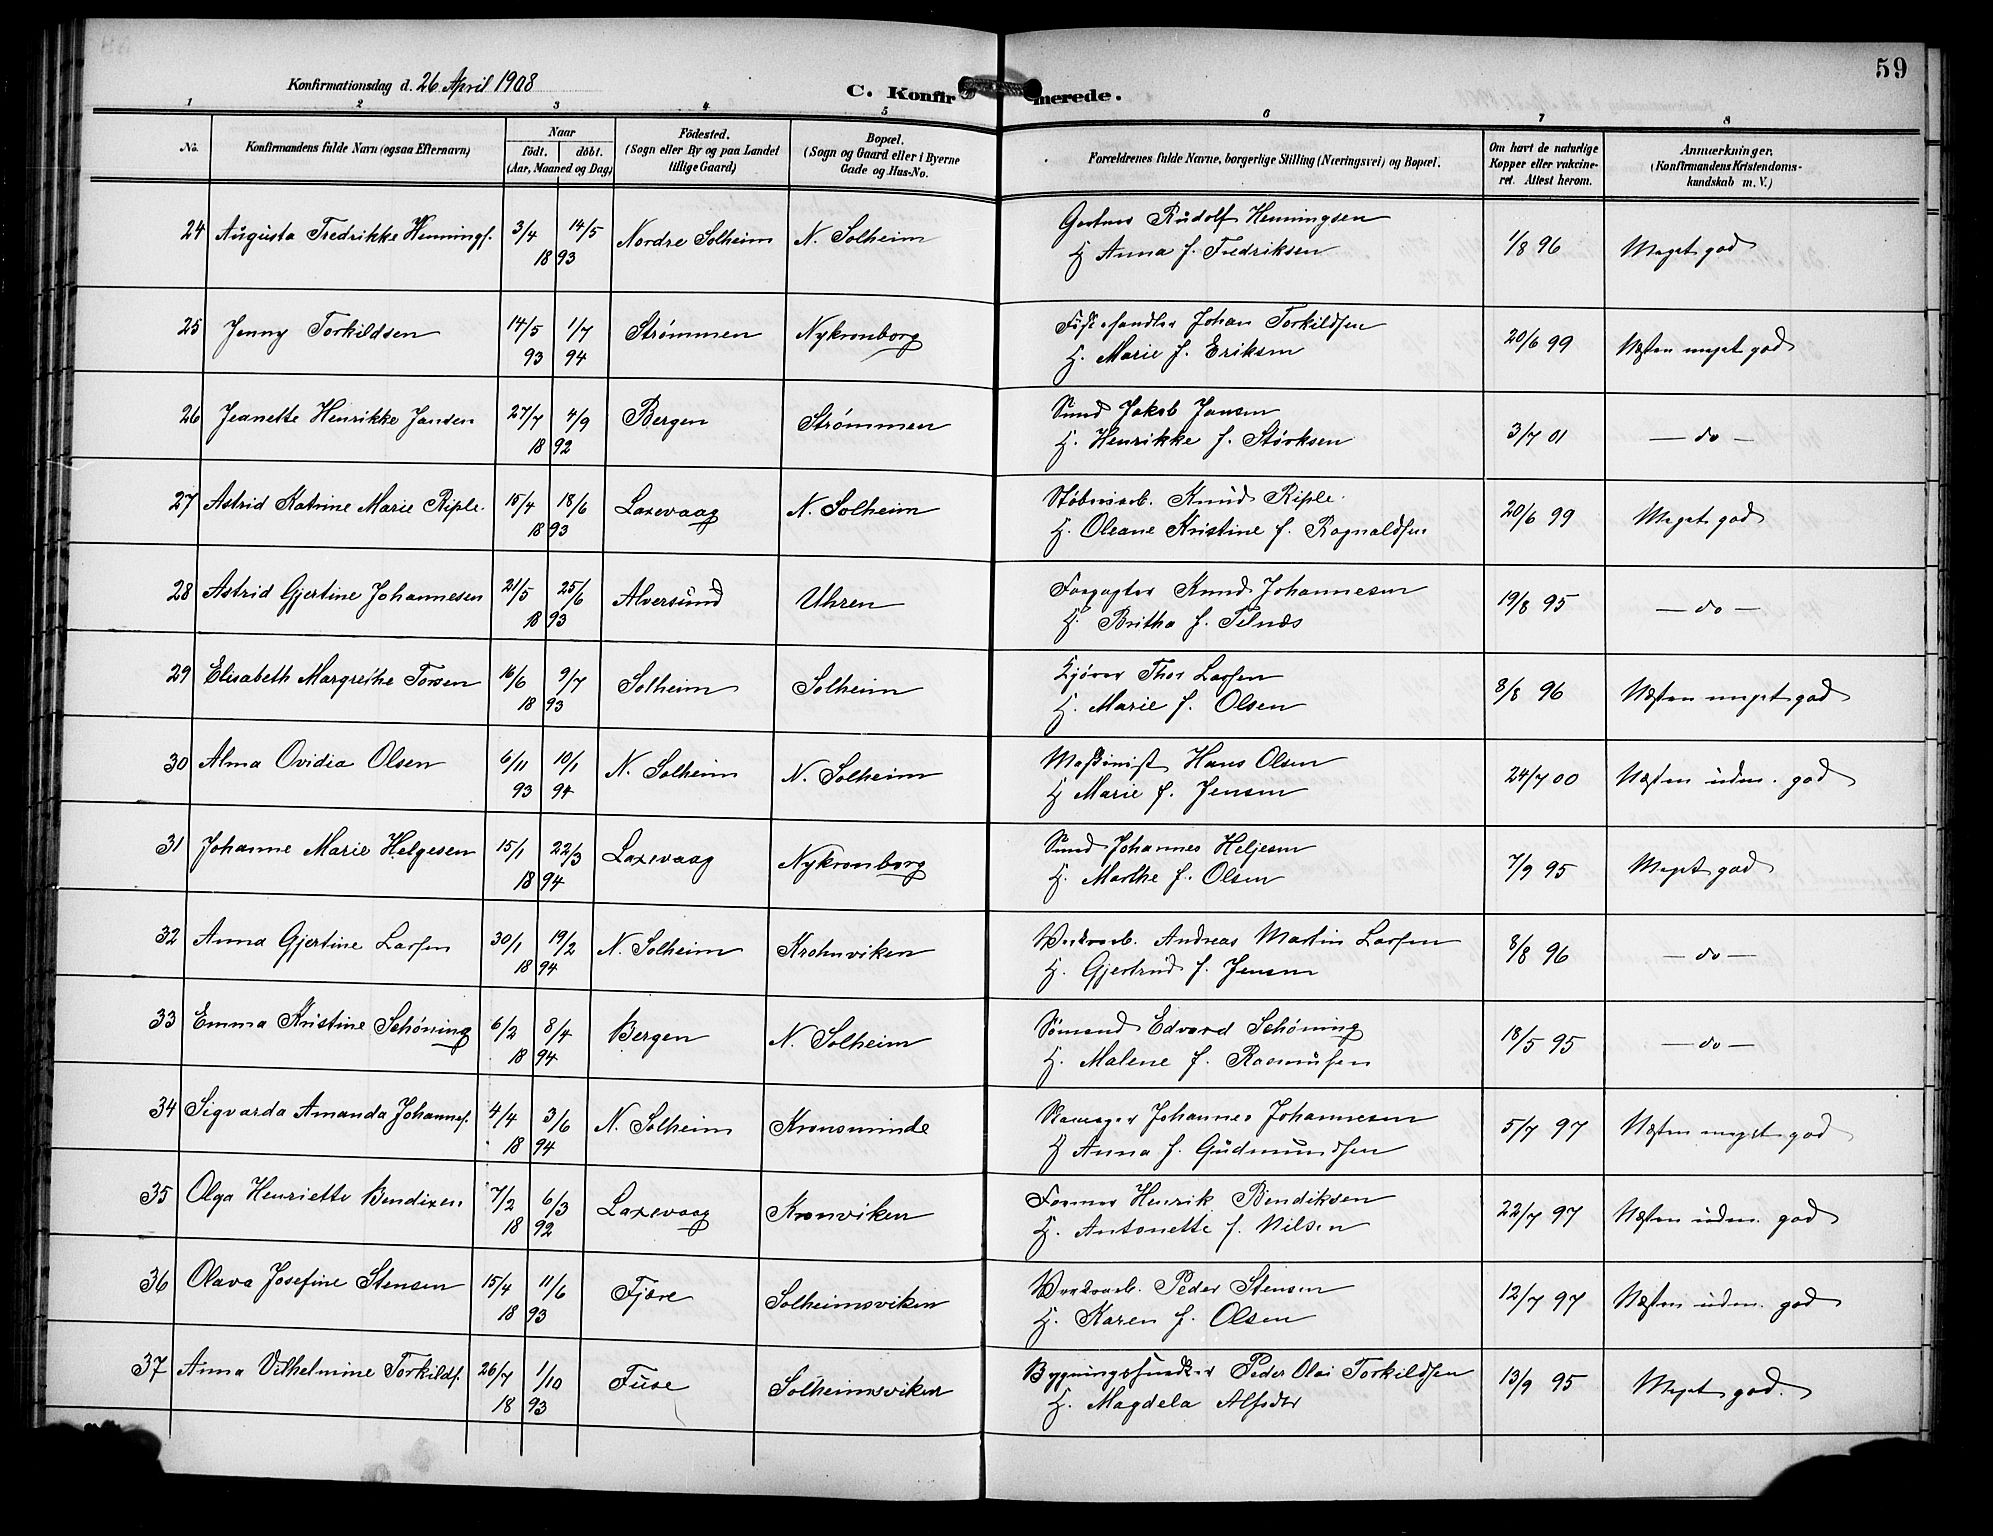 59
Konfirmationsdag d. 26 April 1908
C. Konfirmerede.
1 2 3 4 5 6 7 8
No. Konfirmandens fulde Navn (ogsaa Efternavn) Naar födt. döbt. (Aar, Maaned og Dag) Födested. (Sogn eller By og paa Landet tillige Gaard) Bopæl. (Sogn og Gaard eller i Byerne Gade og Hus-No. Forældrenes fulde Navne, borgerlige Stilling (Næringsvei) og Bopæl. Om havt de naturlige Kopper eller vakcineret. Attest herom. Anmærkninger, (Konfirmandens Kristendomskundskab m. V.)
24 Augusta Fredrikke Hennings. 3/4 14/5 1893 Nordre Solheim N. Solheim Gartner Rudolf Henningsen 1/8 96 Meget god
H Anna f. Fredriksen
25 Jenny Torkildsen 14/5 93 1/7 94 Strømmen Nykronborg Fiskehandler Johan Torkildsen 20/6 99 Næsten meget god
H. Marie f. Eriksen
26 Jeanette Henrikke Jansen 27/7 4/9 1892 Bergen Strømmen Smed Jakob Jansen 3/7 01 — do —
H. Henrikke f. Størksen
27 Astrid Katrine Marie Riple. 15/4 18/6 1893 Laxevaag N. Solheim Støberiarb. Knud Riple. 20/6 99 Meget god
H. Oleane Kristine f. Ragnaldsen
28 Astrid Gjertine Johannesen 21/5 25/6 1893 Alversund Uhren Forpagter Knud Johannesen 19/8 95 — do —
H. Britha f. Titnæs
29 Elisabeth Margrethe Torsen 16/6 9/7 1893 Solheim Solheim Kjører Thor Larsen 8/8 96 Næsten meget god
H. Marie f. Olsen
30 Alma Ovidia Olsen 6/11 93 10/1 94 N. Solheim N. Solheim Maskinist Hans Olsen 24/7 00 Næsten udm. god
H Marie f. Jensen
31 Johanne Marie Helgesen 15/1 22/3 1894 Laxevaag Nykronborg Smed Johannes Heljesen 7/9 95 Meget god
H. Marthe f. Olsen
32 Anna Gjertine Larsen 30/1 19/2 1894 N. Solheim Krohnviken Verkarb. Andreas Martin Larsen 8/8 96 — do —
H. Gjertrud f. Jensen
33 Emma Kristine Schöning 6/2 8/4 1894 Bergen N. Solheim Sømand Edvard Schöning 18/5 95 — do —
H. Malene f. Rasmusen
34 Sigvarda Amanda Johannes. 4/4 3/6 1894 N. Solheim Kronsminde Johannes Johannesen 5/7 97 Næsten meget god
H Anna f. Gudmundsen
35 Olga Henriette Bendixen 7/2 6/3 1892 Laxevaag Kronviken Former Henrik Bendiksen 22/7 97 Næsten udm. god
H. Antonette f. Nilsen
36 Olava Josefine Stensen 15/4 11/6 1893 Fjære Solheimsviken Verkarb. Peder Stensen 12/7 97 Næsten udm. god
H. Karen f. Olsen
37 Anna Vilhelmine Torkilds. 26/7 1/10 1893 Fuse Solheimsviken Bygningssnedker Peder Olai Torkildsen 13/9 95 Meget god.
H. Magdela Alfsdtr